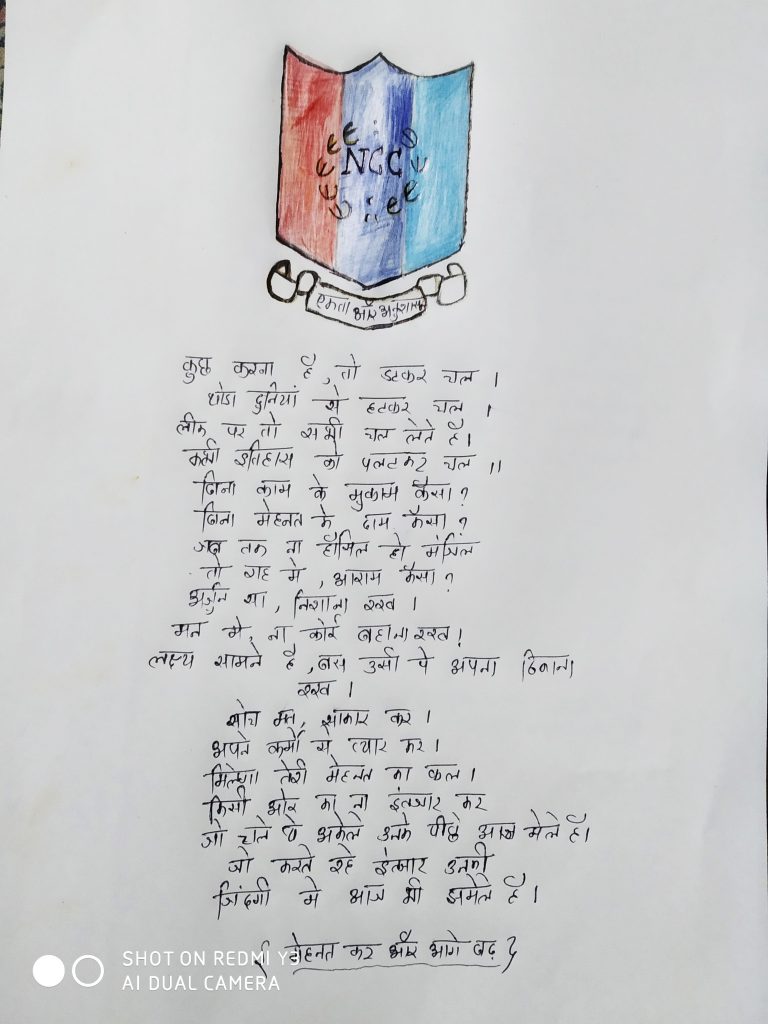 NCC
एकता और अनुशासन
कुछ करना है, तो डटकर चल ।
थोडा दुनियां से हटकर चल ।
लीक पर तो सभी चल लेते है।
कभी इतिहास को पलटकर चल ॥
बिना काम के मुकाम कैसा ?
बिना मेहनत के दाम कैसा ?
जब तक ना हाँसिल हो मंजिल
तो राह मे , आराम कैसा ?
अर्जुन सा , निशाना रख ।
मन मे, ना कोई बहाना रख !
लक्ष्य सामने है , बस उसी पे अपना ठिकाना
रख ।
सोच मत, साकार कर ।
अपने कर्मो से प्यार कर ।
मिलेगा तेरी मेहनत का फल ।
किसी ओर का ना इंतजार कर
जो चले थे अकेले उनके पीछे आज मेले है।
जो करते रहे इंतजार उनकी
जिंदगी मे आज भी झमेले है ।
{ मेहनत कर और आगे बढ़ }
SHOT ON REDMI Y3
AI DUAL CAMERA